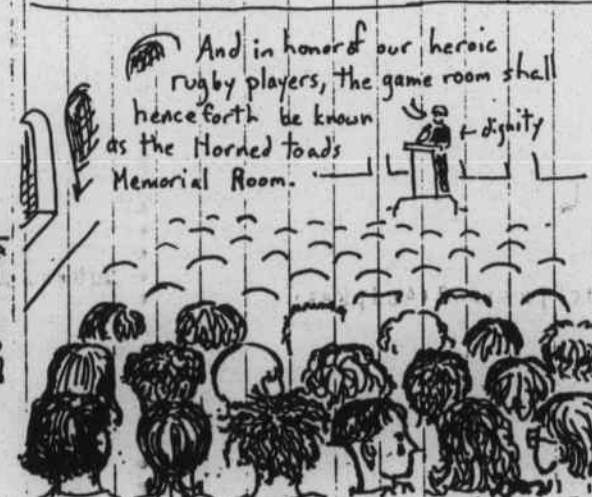 And in honor of our heroic
rugby players, the game room shall
henceforth be known
as the Horned toads
Memorial Room.
dignity